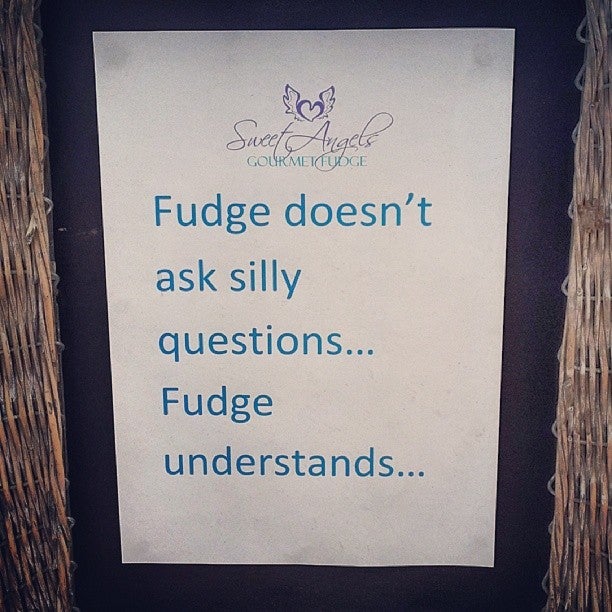 Sweet Angels
GOURMET FUDGE
Fudge doesn’t
ask silly
questions...
Fudge
understands...